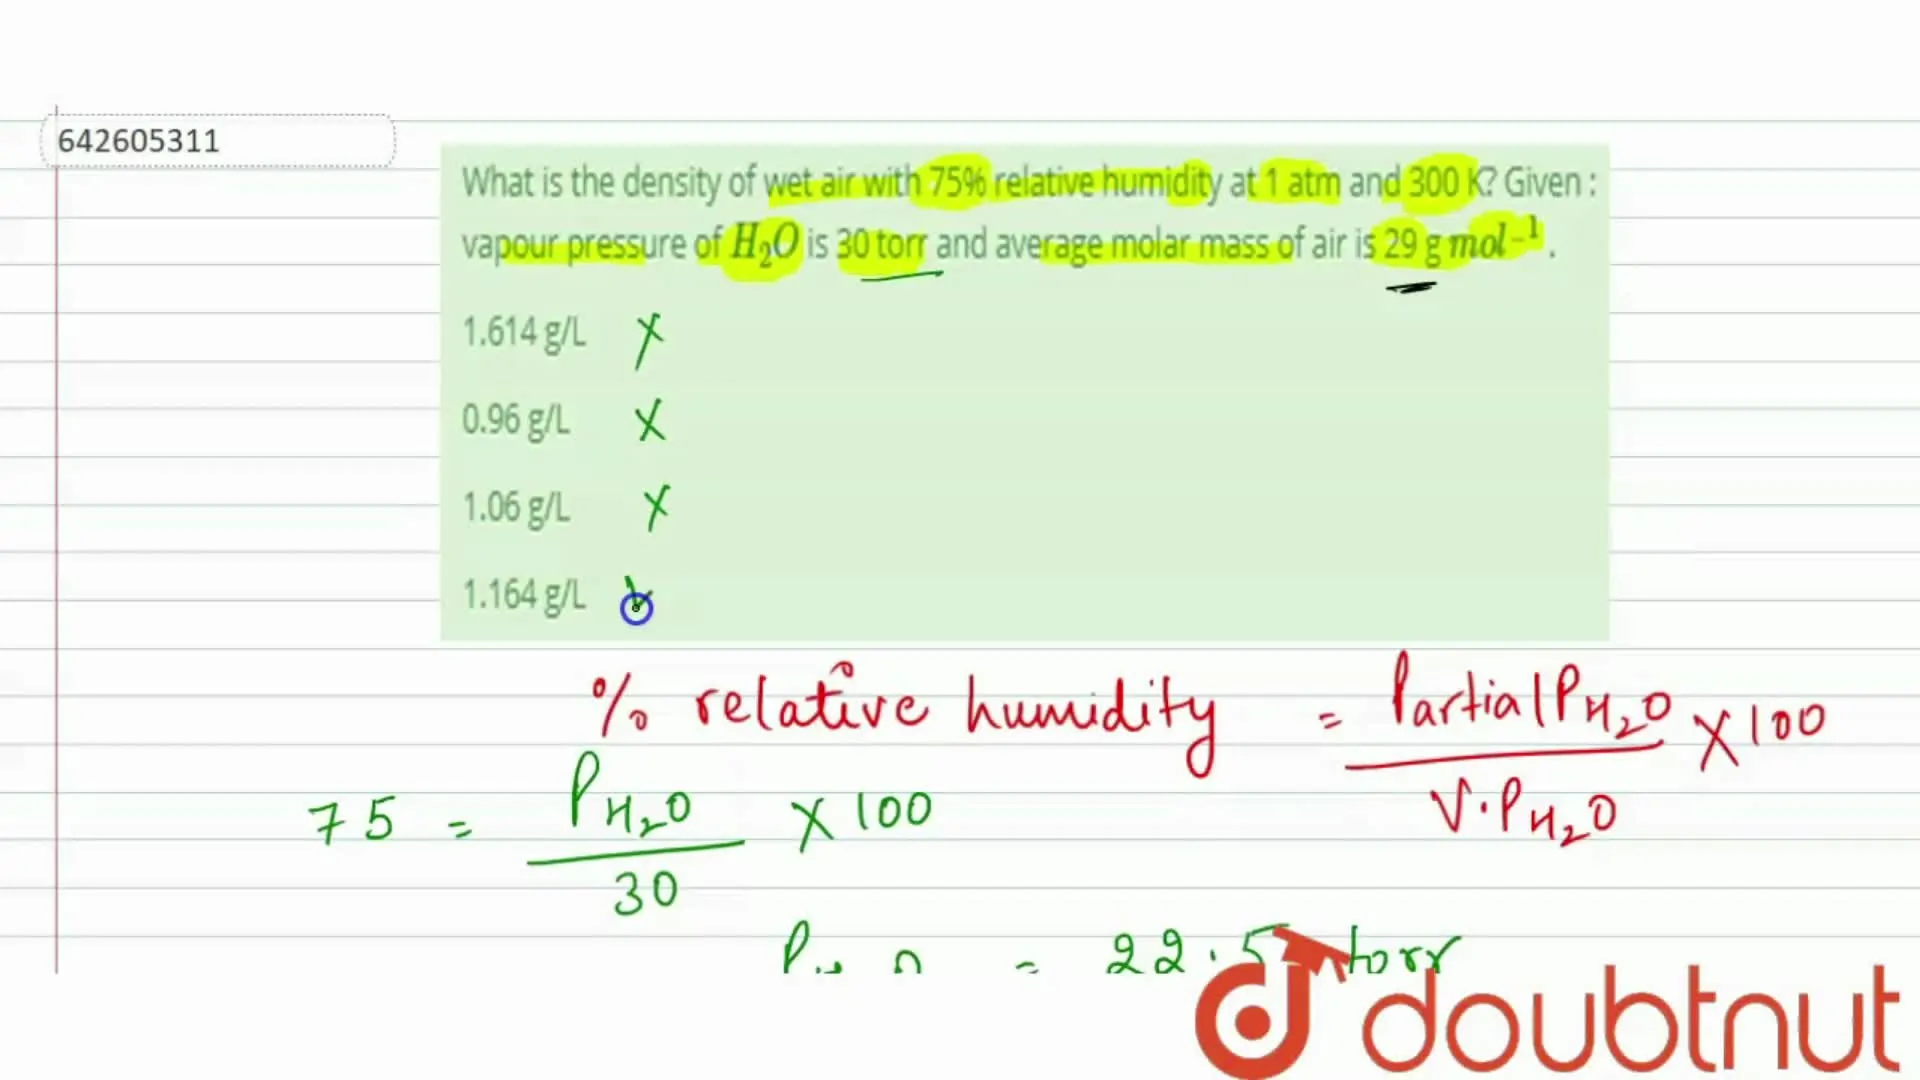 642605311
What is the density of wet air with 75% relative humidity at 1 atm and 300 K? Given :
vapour pressure of H₂O is 30 torr and average molar mass of air is 29 g mol⁻¹ .
1.614 g/L X
0.96 g/L X
1.06 g/L X
1.164 g/L
% relative humidity = Partial P H₂O / V.P H₂O X 100
75 = P H₂O / 30 X 100
= 22.5 torr
doubtnut